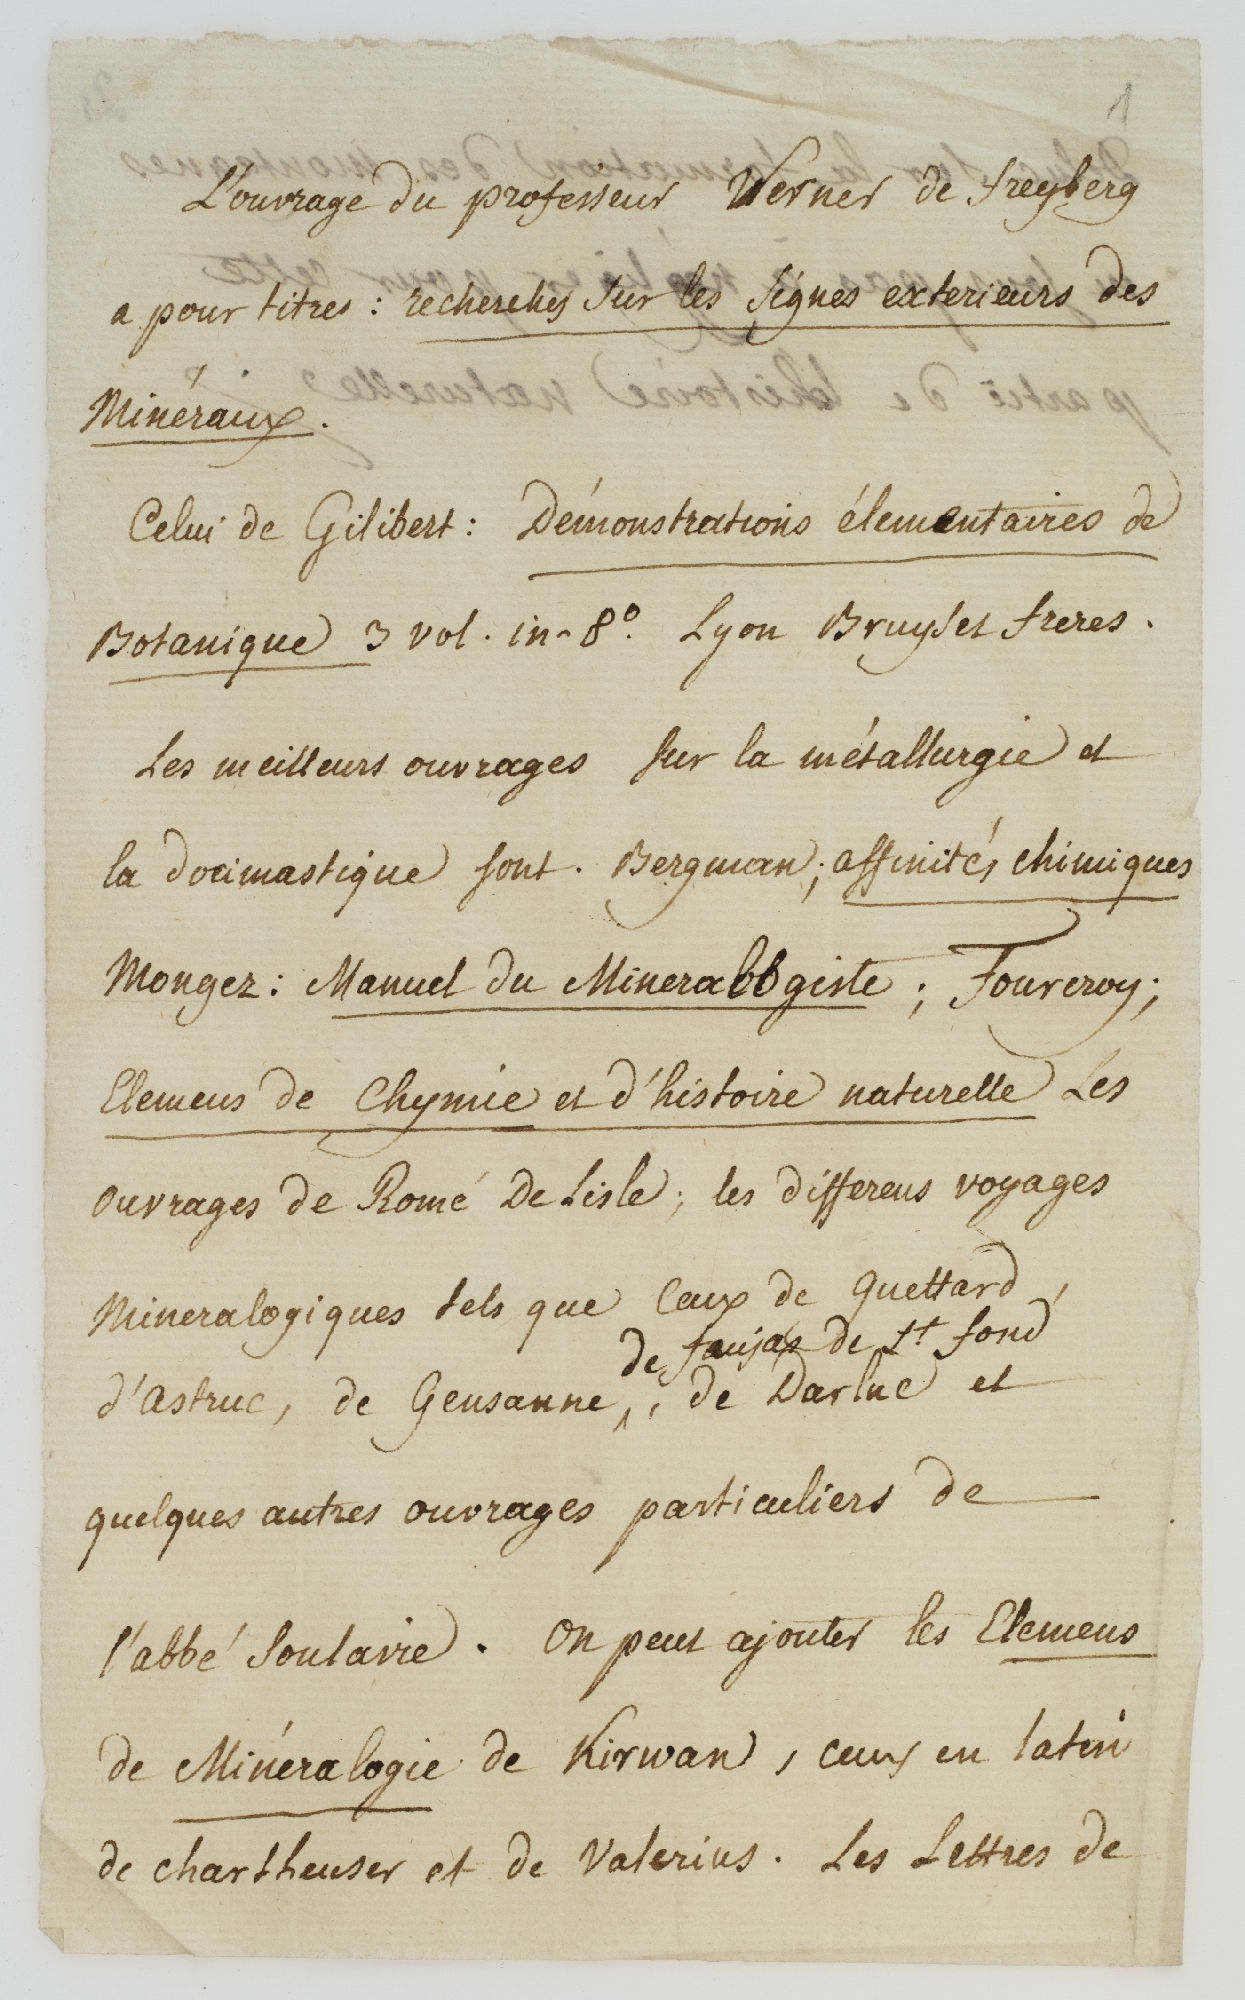 1
L'ouvrage du professeur Werner de freyberg
a pour titres : recherches sur les signes exterieurs des
Minéraux.
Celui de Gilibert : Démonstrations élementaires de
Botanique 3 vol. in-8°. Lyon Bruyset freres.
Les meilleurs ouvrages sur la métallurgie et
la docimastique sont. Bergman; affinités chimiques
Mongez : Manuel du Mineralogiste ; Fourcroy ;
Elemens de Chymie et d'histoire naturelle Les
ouvrages de Romé De Lisle ; les differens voyages
Mineralogiques tels que Ceux de Guettard,
de faujas de St fond
d'Astruc, de Gensanne, , de Darluc et
quelques autres ouvrages particuliers de
l'abbé Soulavie. On peut ajouter les Elemens
de Minéralogie de Kirwan, ceux en latin
de chartheuser et de Valerius. Les Lettres de